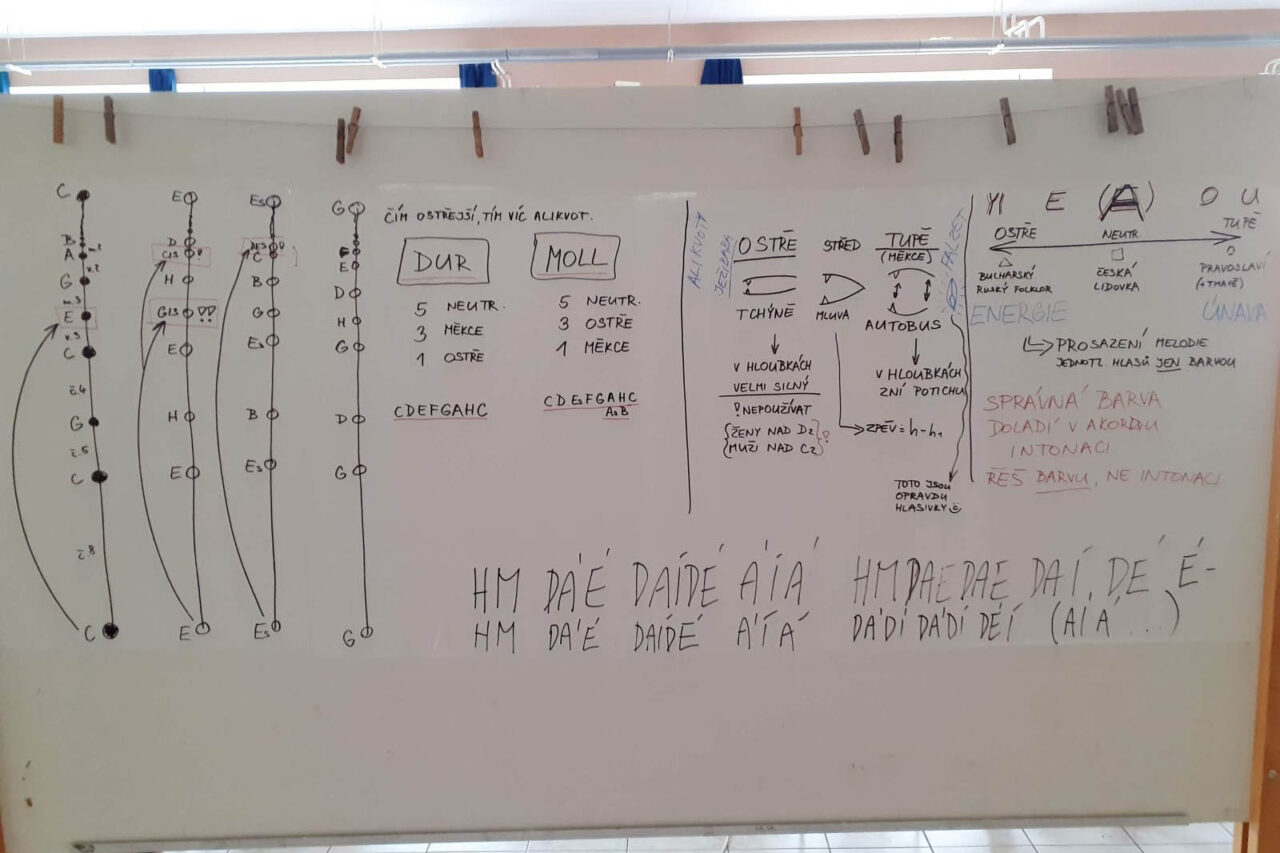 C
B
A
G
E
C
G
C
C
E
D
CIS !
H
GIS !!
E
H
E
E
Es
DES !
C
B
G
Es
B
Es
Es
G
F
E
D
H
G
D
G
G
ČÍM OSTŘEJŠÍ, TÍM VÍC ALIKVOT.
DUR
5 NEUTR.
3 MĚKCE
1 OSTŘE
CDEFGAHC
MOLL
5 NEUTR.
3 OSTŘE
1 MĚKCE
CDEsFGAHC
AsB
ALIKVOTY
JEŽIBABA
OSTŘE
TCHÝNĚ
V HLOUBKÁCH
VELMI SILNÝ
! NEPOUŽÍVAT
{ŽENY NAD D2
MUŽI NAD C2} !
STŘED
MLUVA
ZPĚV = h-h1
TUPĚ
(MĚKCE)
AUTOBUS
V HLOUBKÁCH
ZNÍ POTICHU
FALZET
TOTO JSOU
OPRAVDU
HLASIVKY
YI E (A) O U
OSTŘE NEUTR. TUPĚ
BULHARSKÝ
RUSKÝ FOLKLOR
ČESKÁ
LIDOVKA
PRAVOSLAVÍ
(+TMAVĚ)
ENERGIE ÚNAVA
PROSAZENÍ MELODIE
JEDNOTL. HLASŮ JEN BARVOU
SPRÁVNÁ BARVA
DOLADÍ V AKORDU
INTONACI
ŘEŠ BARVU, NE INTONACI
HM DÁ'É DAÍDÉ ÁÍÁ HMDAEDAE DAÍ, DÉ É-
HM DÁ'É DAÍDÉ Á'ÍÁ DÁ'DÍ DÁ'DÍ DÉÍ (AÍÁ ...)